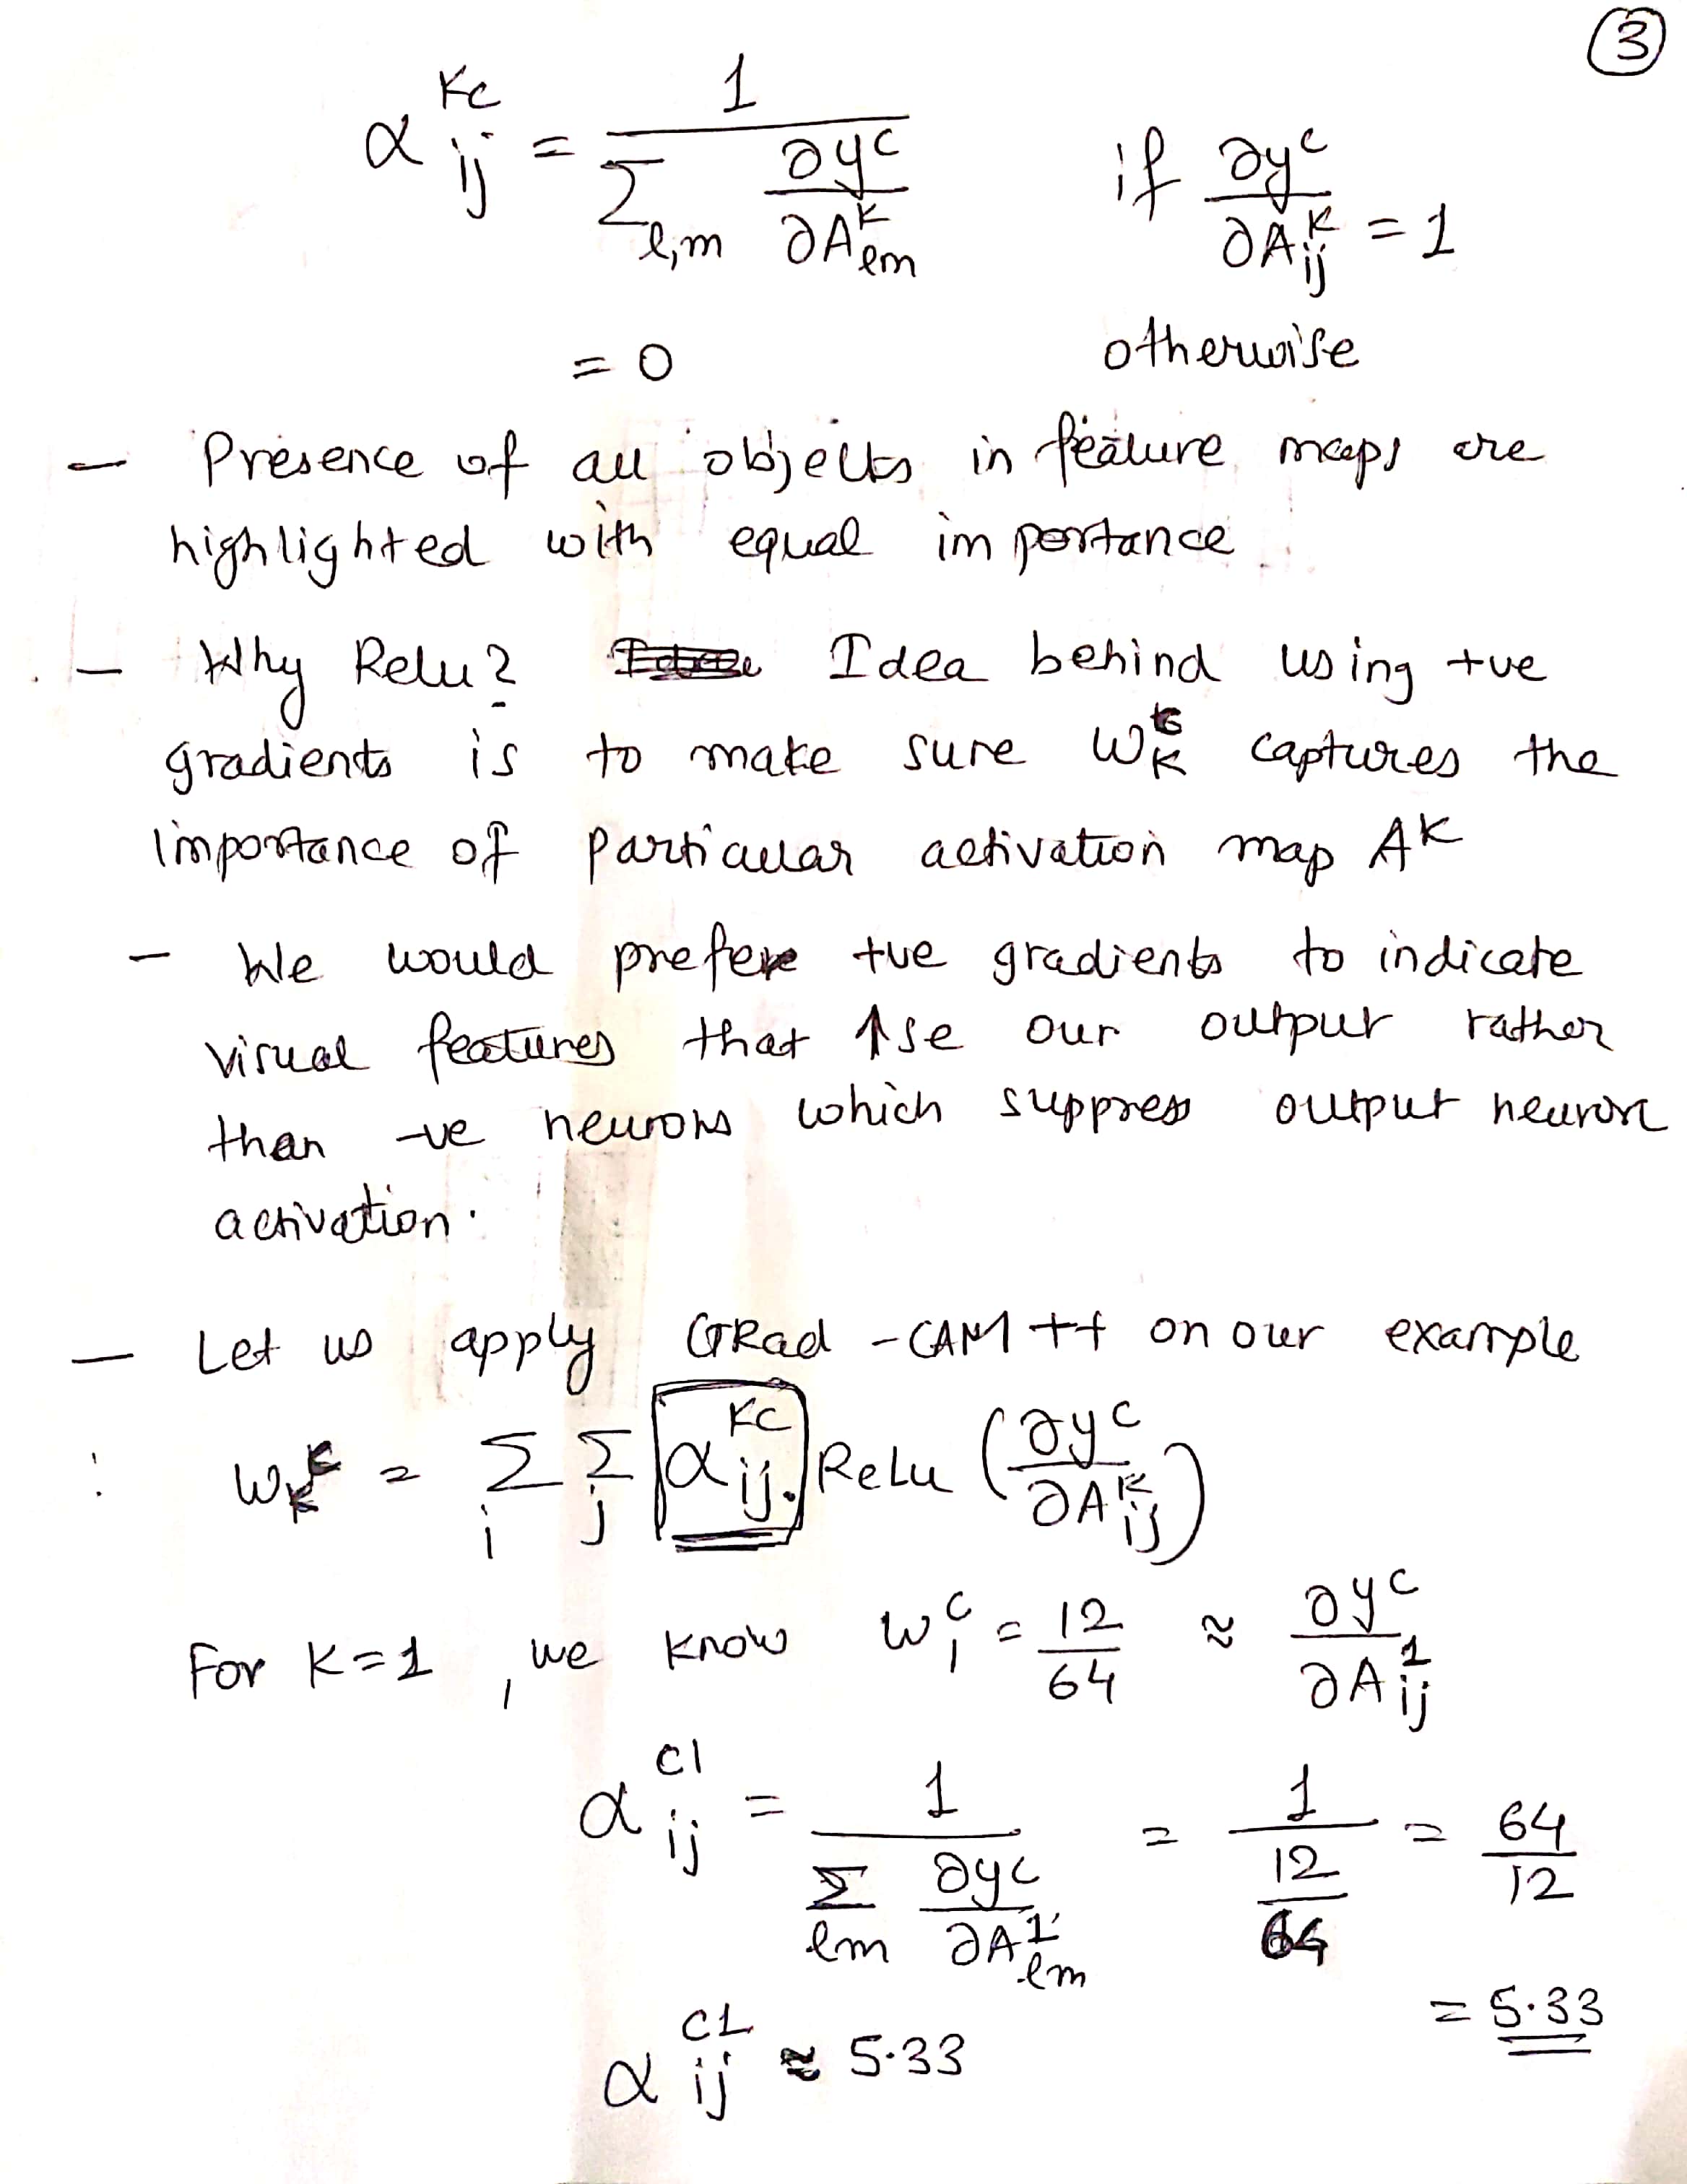 3
α_{ij}^{Kc} = \frac{1}{\sum_{l,m} \frac{∂y^c}{∂A_{lm}^k}} if \frac{∂y^c}{∂A_{ij}^k} = 1
= 0 otherwise
- Presence of all objects in feature maps are
highlighted with equal importance
- Why Relu? Idea behind using +ve
gradients is to make sure W_K^c captures the
importance of particular activation map A^K
- We would prefere +ve gradients to indicate
visual features that ↑se our output rather
than -ve neurons which suppress output neuron
activation.
- Let us apply GRad-CAM++ on our example
∴ W_K^c = \sum_i \sum_j α_{ij}^{KC}. ReLu (\frac{∂y^c}{∂A_{ij}^K})
For K=1, we know w_1^c = \frac{12}{64} ≈ \frac{∂y^c}{∂A_{ij}^1}
α_{ij}^{C1} = \frac{1}{\sum_{lm} \frac{∂y^c}{∂A_{lm}^1}} = \frac{1}{\frac{12}{64}} = \frac{64}{12}
= 5.33
α_{ij}^{C1} ≈ 5.33